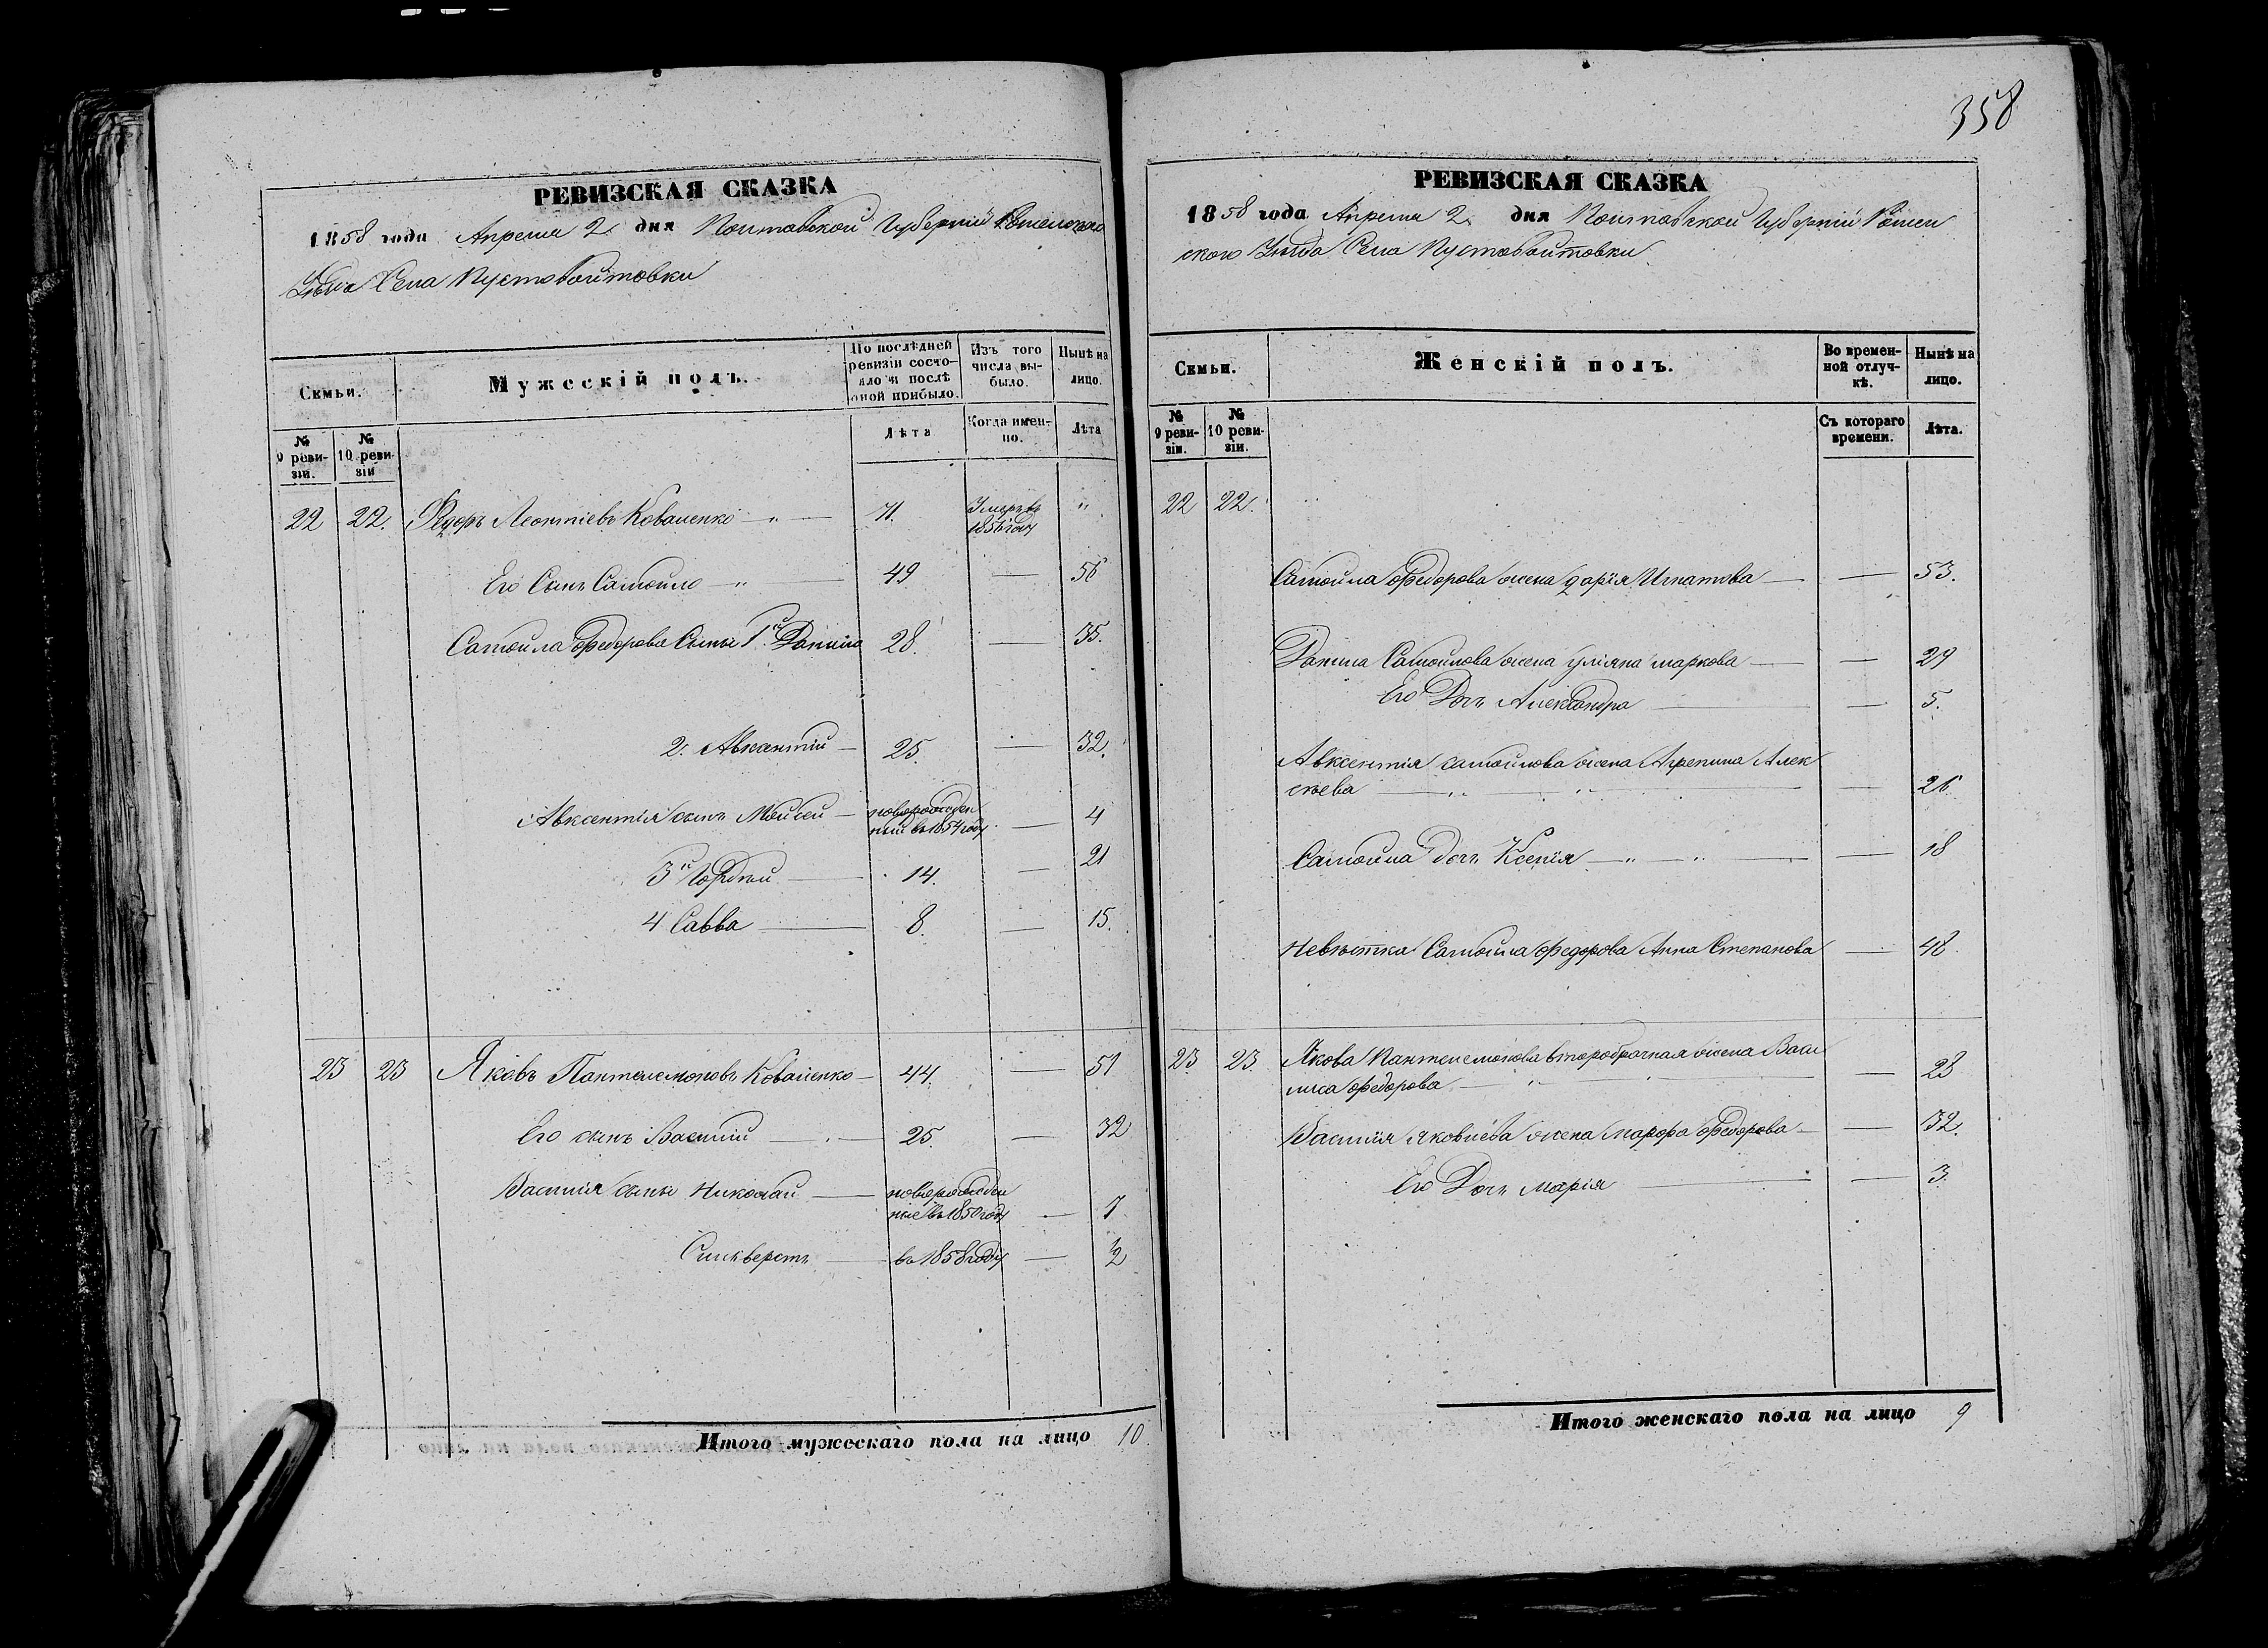 358
РЕВИЗСКАЯ СКАЗКА
1858 года Апреля 2 дня Полтавской Губерніи Роменскаго
Уѣзда Села Пустовойтовки
Семьи.
Мужескій полъ.
По послѣдней ревизіи состояло и послѣ оной прибыло.
Изъ того числа выбыло.
Нынѣ на лицо.
№ 9 ревизіи.
№ 10 ревизіи
Лѣта
Когда именно.
Лѣта
22 22. Федоръ Леонтіевъ Коваленко — „ — 71. Умеръ въ 1856 году „
Его Сынъ Самойло — „ — 49 — 56
Самойла Федорова Сыны 1й Данило 28. — 35.
2. Авксентій — 25. — 32.
Авксентія сынъ Мойсей — новорожденный въ 1854 году — 4
3й Гордѣй — 14. — 21
4 Савва — 8. — 15.
23 23 Яковъ Пантелемоновъ Коваленко — 44. — 51
Его сынъ Василій — 25. — 32
Василія сыны Николай — новорожденные въ 1850 году — 7
Сильверстъ — въ 1858 году — ½
Итого мужескаго пола на лицо 10
РЕВИЗСКАЯ СКАЗКА
1858 года Апреля 2 дня Полтавской Губерніи Ромен
ского Уѣзда Села Пустовойтовки
Семьи.
Женскій полъ.
Во временной отлучкѣ.
Нынѣ на лицо.
№ 9 ревизіи.
№ 10 ревизіи.
Съ котораго времени.
Лѣта.
22 22.
Самойла Федорова жена Дарія Игнатова — — 53.
Данила Самойлова жена Уліяна Маркова — — 29
Его Дочь Александра — — 5.
Авксентія Самойлова жена Агрепина Алек
сѣева — „ „ — — 26.
Самойла дочь Ксенія — „ — „ — — 18
Невѣстка Самойла Федорова Анна Степанова — 48
23 23. Якова Пантелемонова второбрачная жена Васи
лиса Федорова — „ — — 28
Василія Яковлева жена Марфа Федорова — — 32.
Его Дочь Марія — — 3.
Итого женскаго пола на лицо 9